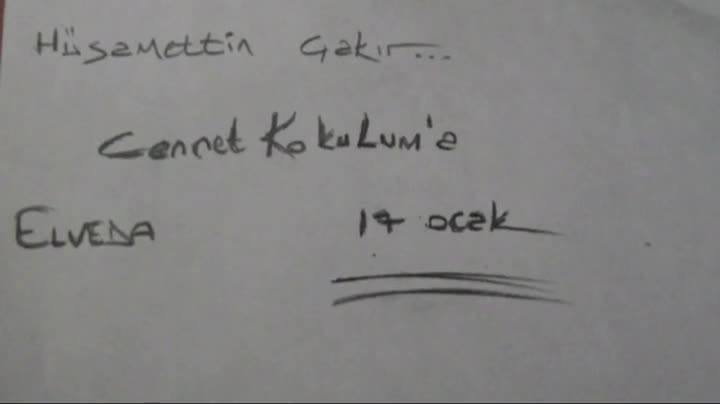 Hüsamettin Çakır...
Cennet Kokulum'a
ELVEDA 17 ocak